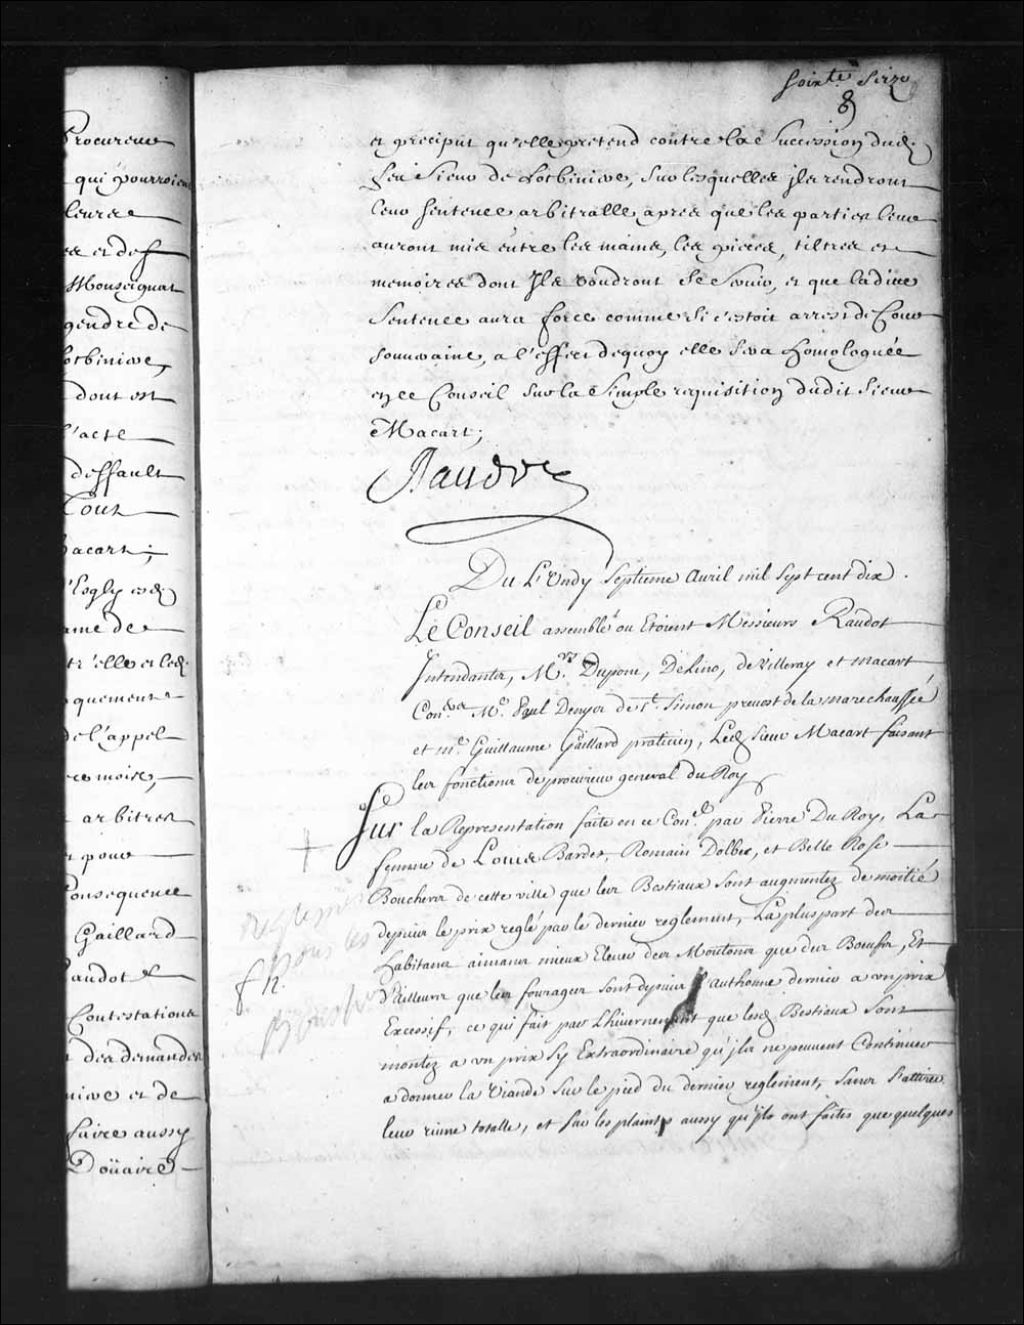 Procureur
qui pourroient
leurs
es et def
Monseignat
gendre de
Lotbiniere,
dont est
l'acte
deffault
Tout
Macart;
l'Esgly esd.
ame de
tr'elle et led.
quement
de l'appel
ce mois,
arbitres
pour
Consequence
Gaillard
Raudot
Contestations
des demandes
niere et de
faire aussy
Doüaire
soixte. seize
8
et preciput qu'elle pretend contre la Succession dud.
feu Sieur de Lotbiniere, sur lesquelles ils rendront
leur Sentence arbitralle apres que les parties leur
auront mis entre les mains, les pieces, tiltres et
memoires dont Ils voudront se Servir, et que ladite
Sentence aura force comme si c'estoit arrest de Cour
souveraine, a l'effect dequoy elle sera homologuée
en ce Conseil sur la Simple requisition dudit Sieur
Macart;
Raudot
Du L'Undy Septieme Avril mil Sept cent dix.
Le Conseil assemblé ou Etoient Messieurs Raudot
Intendants, Mrs. Dupont, Delino, de Villeray et macart
Con.ers Me. Paul Denys de St. Simon prevost de la marechaussée
et me. Guillaume Gaillard praticien, Led. sieur Macart faisant
les fonctions de procureur general du Roy
Sur la Representation faite en ce Con.el par Pierre Du Roy, La
femme de Louis Bardet, Romain Dolbec, et Belle Rose
Bouchers de cette ville que les Bestiaux sont augmentez de moitié
depuis le prix reglé par le dernier reglement, La pluspart des
habitans aimans mieux Elever des Moutons que des Boeufs, Et
D'ailleurs que les fourages sont depuis l'authonne dernier a un prix
Excessif, ce qui fait par L'hivernement que lesd. Bestiaux sont
montez a un prix sy Extraordinaire qu'ils ne peuvent Continuer
a donner la Viande sur le pied du dernier reglement, sans s'attirer
leur ruine totalle, et sur les plaintes aussy qu'ils ont faites que quelques